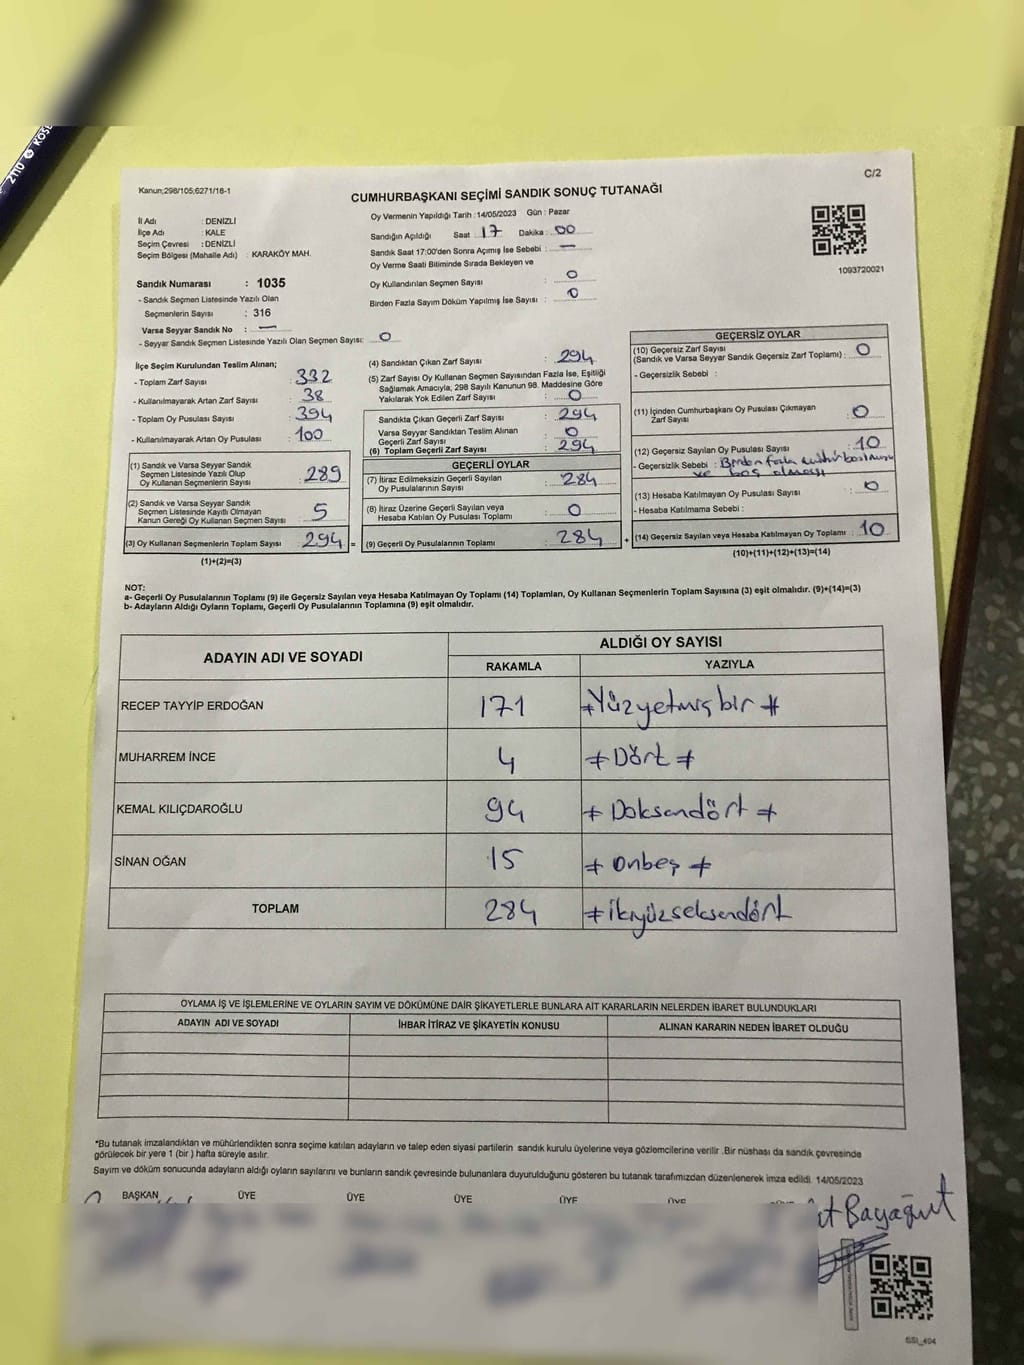 2110 KOŞE
C/2
Kanun;298/105;6271/16-1
CUMHURBAŞKANI SEÇİMİ SANDIK SONUÇ TUTANAĞI
İl Adı : DENİZLİ
İlçe Adı : KALE
Seçim Çevresi : DENİZLİ
Seçim Bölgesi (Mahalle Adı) : KARAKÖY MAH.
Oy Vermenin Yapıldığı Tarih : 14/05/2023 Gün : Pazar
Sandığın Açıldığı Saat : 17 Dakika : 00
Sandık Saat 17:00'den Sonra Açımış İse Sebebi : —
Oy Verme Saati Bitiminde Sırada Bekleyen ve
Oy Kullandırılan Seçmen Sayısı : 0
Birden Fazla Sayım Döküm Yapılmış İse Sayısı : 0
1093720021
Sandık Numarası : 1035
- Sandık Seçmen Listesinde Yazılı Olan
Seçmenlerin Sayısı : 316
Varsa Seyyar Sandık No : —
- Seyyar Sandık Seçmen Listesinde Yazılı Olan Seçmen Sayısı: 0
İlçe Seçim Kurulundan Teslim Alınan;
- Toplam Zarf Sayısı : 332
- Kullanılmayarak Artan Zarf Sayısı : 38
- Toplam Oy Pusulası Sayısı : 394
- Kullanılmayarak Artan Oy Pusulası : 100
(1) Sandık ve Varsa Seyyar Sandık
Seçmen Listesinde Yazılı Olup
Oy Kullanan Seçmenlerin Sayısı : 289
(2) Sandık ve Varsa Seyyar Sandık
Seçmen Listesinde Kayıtlı Olmayan
Kanun Gereği Oy Kullanan Seçmen Sayısı : 5
(3) Oy Kullanan Seçmenlerin Toplam Sayısı : 294 =
(1)+(2)=(3)
(4) Sandıktan Çıkan Zarf Sayısı : 294
(5) Zarf Sayısı Oy Kullanan Seçmen Sayısından Fazla İse, Eşitliği
Sağlamak Amacıyla; 298 Sayılı Kanunun 98. Maddesine Göre
Yakılarak Yok Edilen Zarf Sayısı : 0
Sandıkta Çıkan Geçerli Zarf Sayısı : 294
Varsa Seyyar Sandıktan Teslim Alınan
Geçerli Zarf Sayısı : 0
(6) Toplam Geçerli Zarf Sayısı : 294
GEÇERLİ OYLAR
(7) İtiraz Edilmeksizin Geçerli Sayılan
Oy Pusulalarının Sayısı : 284
(8) İtiraz Üzerine Geçerli Sayılan veya
Hesaba Katılan Oy Pusulası Toplamı : 0
(9) Geçerli Oy Pusulalarının Toplamı : 284 +
GEÇERSİZ OYLAR
(10) Geçersiz Zarf Sayısı
(Sandık ve Varsa Seyyar Sandık Geçersiz Zarf Toplamı) : 0
- Geçersizlik Sebebi :
(11) İçinden Cumhurbaşkanı Oy Pusulası Çıkmayan
Zarf Sayısı : 0
(12) Geçersiz Sayılan Oy Pusulası Sayısı : 10
- Geçersizlik Sebebi : Birden fazla mühür basılması
ve boş olması
(13) Hesaba Katılmayan Oy Pusulası Sayısı : 0
- Hesaba Katılmama Sebebi :
(14) Geçersiz Sayılan veya Hesaba Katılmayan Oy Toplamı : 10
(10)+(11)+(12)+(13)=(14)
NOT:
a- Geçerli Oy Pusulalarının Toplamı (9) ile Geçersiz Sayılan veya Hesaba Katılmayan Oy Toplamı (14) Toplamları, Oy Kullanan Seçmenlerin Toplam Sayısına (3) eşit olmalıdır. (9)+(14)=(3)
b- Adayların Aldığı Oyların Toplamı, Geçerli Oy Pusulalarının Toplamına (9) eşit olmalıdır.
ADAYIN ADI VE SOYADI ALDIĞI OY SAYISI
RAKAMLA YAZIYLA
RECEP TAYYİP ERDOĞAN 171 #Yüzyetmişbir#
MUHARREM İNCE 4 #Dört#
KEMAL KILIÇDAROĞLU 94 #Doksandört#
SİNAN OĞAN 15 #Onbeş#
TOPLAM 284 #ikiyüzseksendört
OYLAMA İŞ VE İŞLEMLERİNE VE OYLARIN SAYIM VE DÖKÜMÜNE DAİR ŞİKAYETLERLE BUNLARA AİT KARARLARIN NELERDEN İBARET BULUNDUKLARI
ADAYIN ADI VE SOYADI İHBAR İTİRAZ VE ŞİKAYETİN KONUSU ALINAN KARARIN NEDEN İBARET OLDUĞU
*Bu tutanak imzalandıktan ve mühürlendikten sonra seçime katılan adayların ve talep eden siyasi partilerin sandık kurulu üyelerine veya gözlemcilerine verilir .Bir nüshası da sandık çevresinde
görülecek bir yere 1 (bir ) hafta süreyle asılır.
Sayım ve döküm sonucunda adayların aldığı oyların sayılarını ve bunların sandık çevresinde bulunanlara duyurulduğunu gösteren bu tutanak tarafımızdan düzenlenerek imza edildi. 14/05/2023
BAŞKAN ÜYE ÜYE ÜYE ÜYE ÜYE
Bayağut
SSI_404